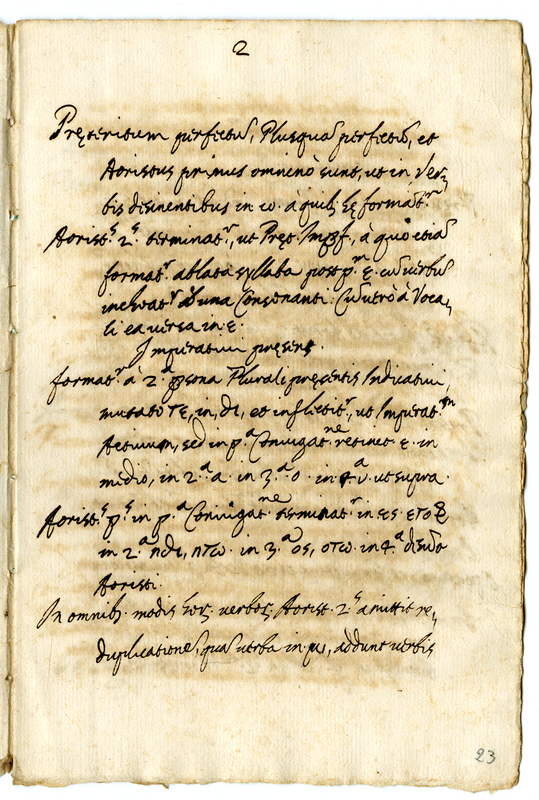 2
Pręteritum perfectū, Plusquā perfectū, et
Aoristus primus omninò sunt, ut in Ver„
bis desinentibus in ω. à quib; hę format.r
Aorist.s 2.s terminat.r, ut Pręt. Impf., à quo etiā
format.r ablata syllaba post p.m ε. cū verbū
inchoat.r ab una Consonanti: Cū verò à Voca„
li ea versa in ε.
Imperativi pręsens.
format.r à 2.a psona Plurali pręsentis Indicativi,
mutato τε, in, θι, et inflectit.r, ut Imperat.m
Activum, sed in p.a Coniugat.ne retinet ε. in
medio, in 2.a α. in 3.a ο. in 4.a υ. ut supra.
Aorist.s p.s in p.a Coniugat.ne terminat.r in ες. ετω &
in 2.a ηθι, ητω. in 3.a ος, οτω. in 4.a
Aoristi.
In omnib; modis verbos; Aorist. 2.s amittit re„
duplicationē, quā verba in μι, addunt verbis
23